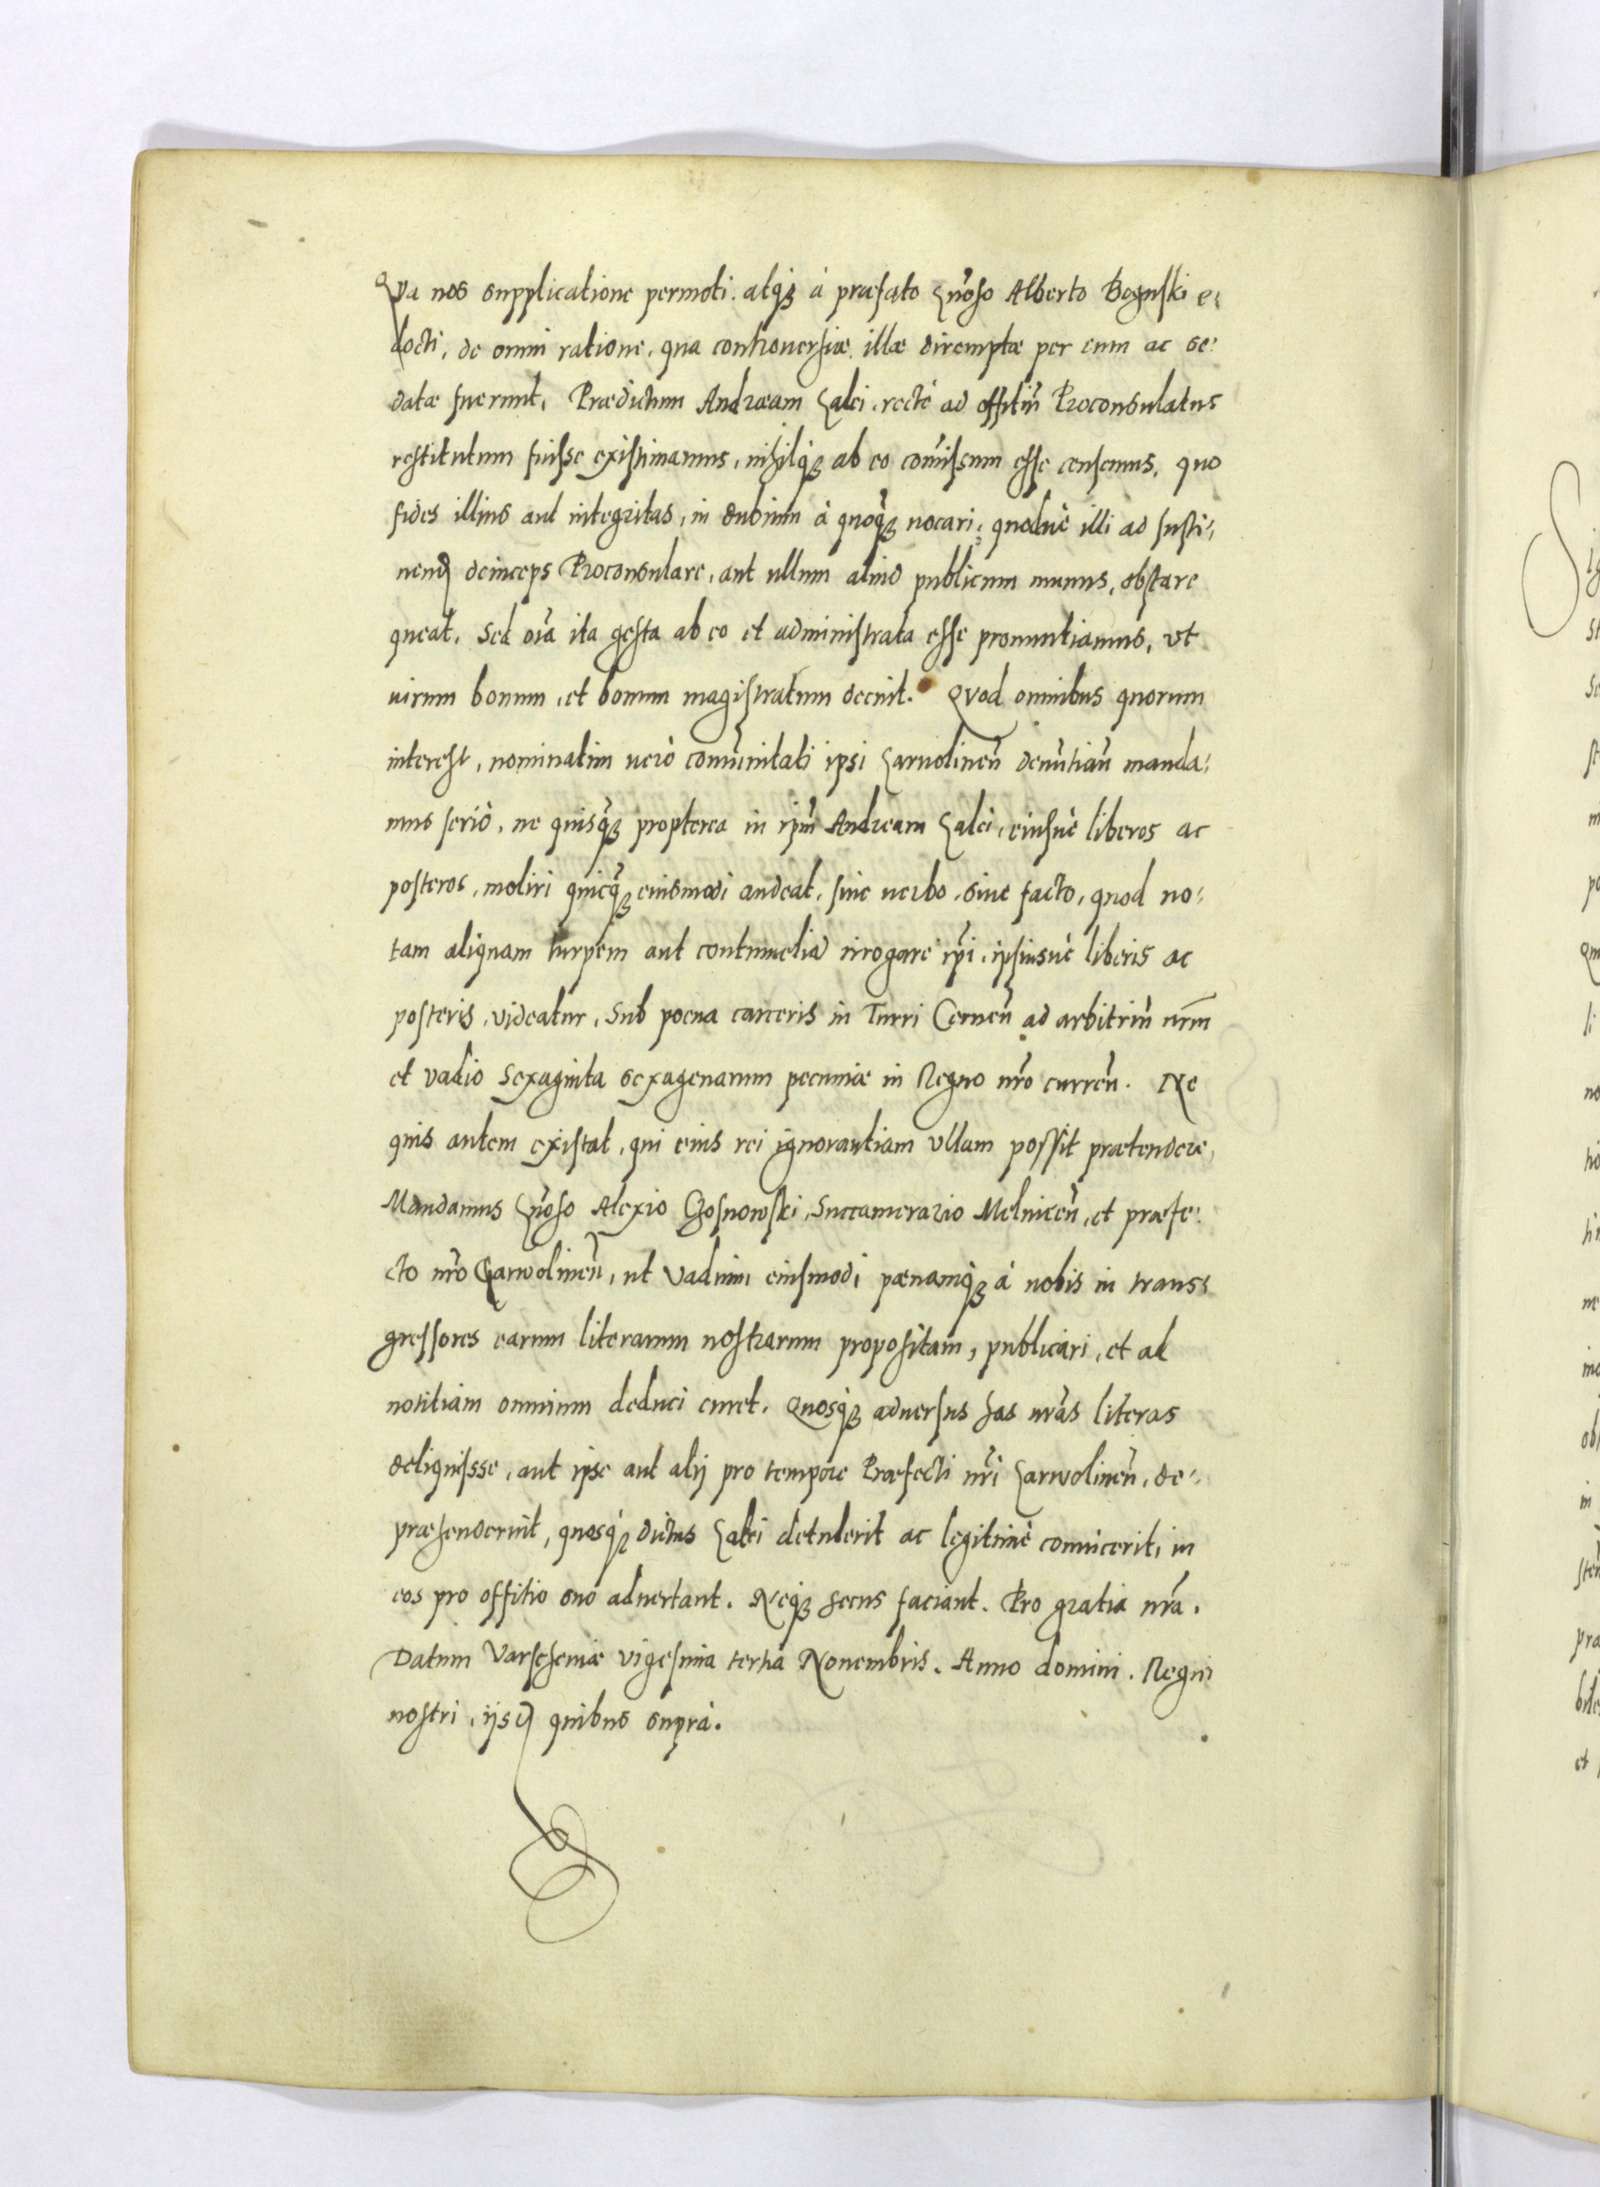 Qva nos supplicatione permoti. atq́ꝫ à præfato Gnoso Alberto Boguski e:
docti, de omni ratione, qua controuersiæ illæ diremptæ per eum ac se:
datæ fuerunt, Prædictum Andræam Galci, rectè ad offitiũ Proconsulatus
restitutum fuisse existimamus, nihilq́ꝫ ab eo com̃issum esse censemus, quo
fides illius aut integritas, in dubium à quoq̃ꝫ uocari, quoduè illi ad susti:
nend deinceps Proconsulare, aut ullum aliud publicum munus, obstare
queat. Sed oĩa ita gesta ab eo et administrata esse pronuntiamus, vt
uirum bonum, et bonum magistratum decuit. Qvod omnibus quorum
interest, nominatim uerò com̃unitati ipsi Garuolineñ denũtiañ manda:
mus seriò, ne quisq̃ꝫ propterea in ip̃m Andream Galci, eiusuè liberos ac
posteros, moliri quicq̃ꝫ eiusmodi audeat, siue uerbo, siue facto, quod no:
tam aliquam turpem aut contumeliã irrogare ip̃i, ipsiusuè liberis ac
posteris, videatur, Sub poena carceris in Turri Cerneñ ad arbitriũ nr̃m
et vadio Sexaginta sexagenarum pecuniæ in Regno nr̃o curreñ. Ne
quis autem existat, qui eius rei ignorantiam vllam possit prætendere,
Mandamus Gnoso Alexio Gosnowski, Succamerario Melniceñ, et præfe:
cto nr̃o Garwolineñ, ut vadium eiusmodi pænamq́ꝫ à nobis in trans:
gressores earum literarum nostrarum propositam, publicari, et ad
notitiam omnium deduci curet. Quosq́ꝫ aduersus has nr̃as literas
deliquisse, aut ipse aut alij pro tempore Præfecti nr̃i Garwolineñ, de:
præhenderint, quosq́ꝫ dictus Galci detulerit ac legitimè conuicerit, in
eos pro offitio suo aduertant. Neq́ꝫ secus faciant. Pro gratia nr̃a.
Datum Varscheuiæ vigesima tertia Nouembris. Anno domini. Regni
nostri, ijsd quibus suprà.